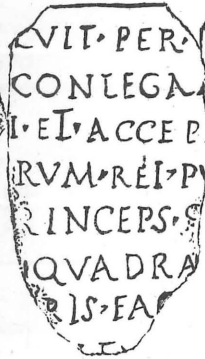 VIT · PER ·
CONLEGA
I · ET · ACCEP
RVM · RÉI · PV
INCEPS · S
QVADRA
IS · EA